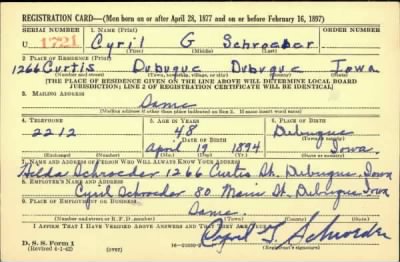 REGISTRATION CARD—(Men born on or after April 28, 1877 and on or before February 16, 1897)
SERIAL NUMBER 1. NAME (Print) ORDER NUMBER
U 1721 Cyril G Schroeder
(First) (Middle) (Last)
2. PLACE OF RESIDENCE (Print)
1266 Curtis Dubuque Dubuque Iowa
(Number and street) (Town, township, village, or city) (County) (State)
[THE PLACE OF RESIDENCE GIVEN ON THE LINE ABOVE WILL DETERMINE LOCAL BOARD
JURISDICTION; LINE 2 OF REGISTRATION CERTIFICATE WILL BE IDENTICAL]
3. MAILING ADDRESS
Same
[Mailing address if other than place indicated on line 2. If same insert word same]
4. TELEPHONE 5. AGE IN YEARS 6. PLACE OF BIRTH
2212 48 Dubuque
DATE OF BIRTH (Town or county)
April 19 1894 Iowa.
(Exchange) (Number) (Mo.) (Day) (Yr.) (State or country)
7. NAME AND ADDRESS OF PERSON WHO WILL ALWAYS KNOW YOUR ADDRESS
Hilda Schroeder 1266 Curtis St. Dubuque, Iowa
8. EMPLOYER'S NAME AND ADDRESS
Cyril Schroeder 80 Main St. Dubuque Iowa
9. PLACE OF EMPLOYMENT OR BUSINESS
Same.
(Number and street or R. F. D. number) (Town) (County) (State)
I AFFIRM THAT I HAVE VERIFIED ABOVE ANSWERS AND THAT THEY ARE TRUE.
D. S. S. Form 1 Cyril G. Schroeder
(Revised 4-1-42) (over) (Registrant's signature)